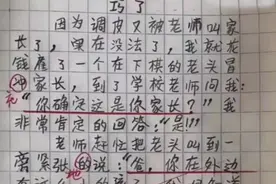 巧了
因为调皮又被老师叫家
长了，实在没法了，我就花
钱雇了一个在下棋的老头冒
冲家长，到了学校老师问我：
充
“你确定这是你家长？”我
非常肯定的回答：“是！”
老师赶忙把老头叫到一
旁紧张的说：“爸，你在外动
地